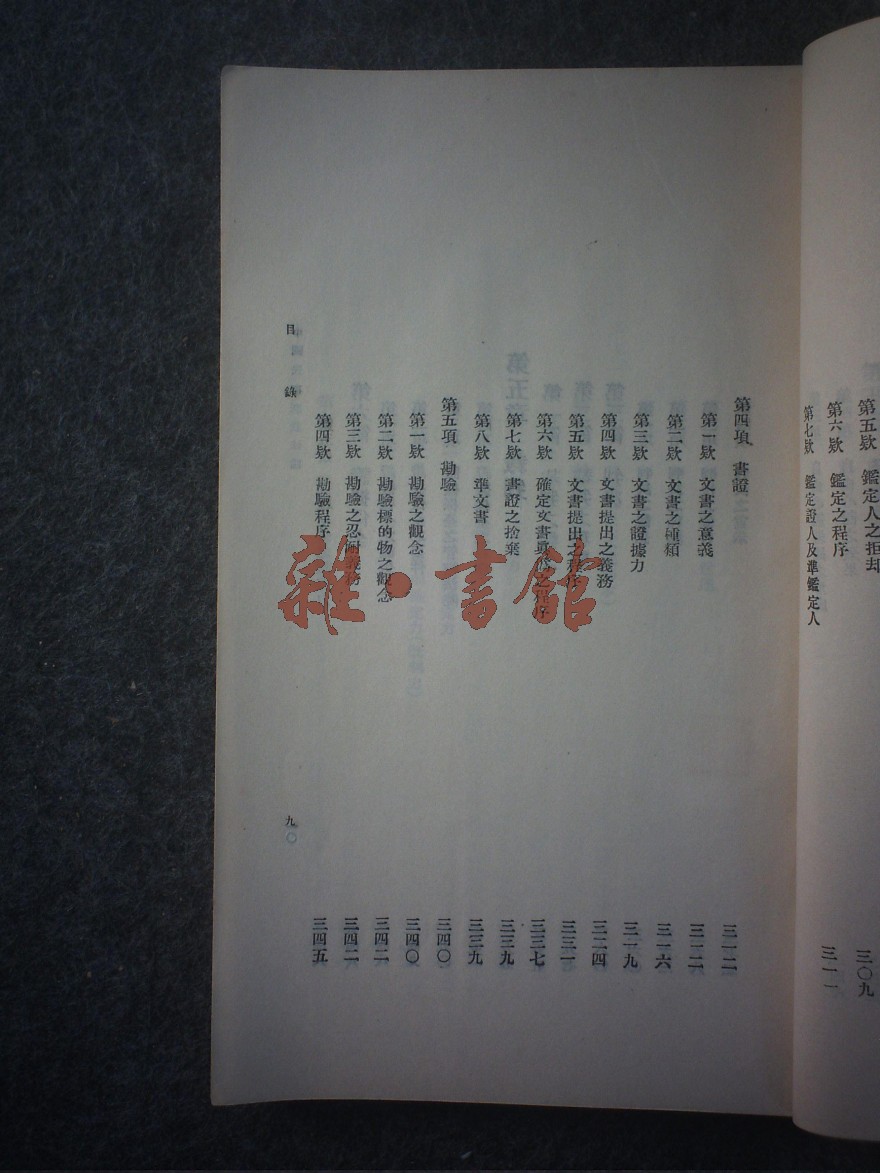 第五欵 鑑定人之拒却 三〇九
第六欵 鑑定之程序 三一一
第七欵 鑑定證人及準鑑定人
第四項 書證 三一二
第一欵 文書之意義 三一二
第二欵 文書之種類 三一六
第三欵 文書之證據力 三一九
第四欵 文書提出之義務 三二四
第五欵 文書提出之程序 三三一
第六欵 確定文書眞僞之程序 三三七
第七欵 書證之捨棄 三三九
第八欵 準文書 三三九
第五項 勘驗 三四〇
第一欵 勘驗之觀念 三四〇
第二欵 勘驗標的物之觀念 三四二
第三欵 勘驗之忍耐義務 三四二
第四欵 勘驗程序 三四五
目錄 九
雜·書館